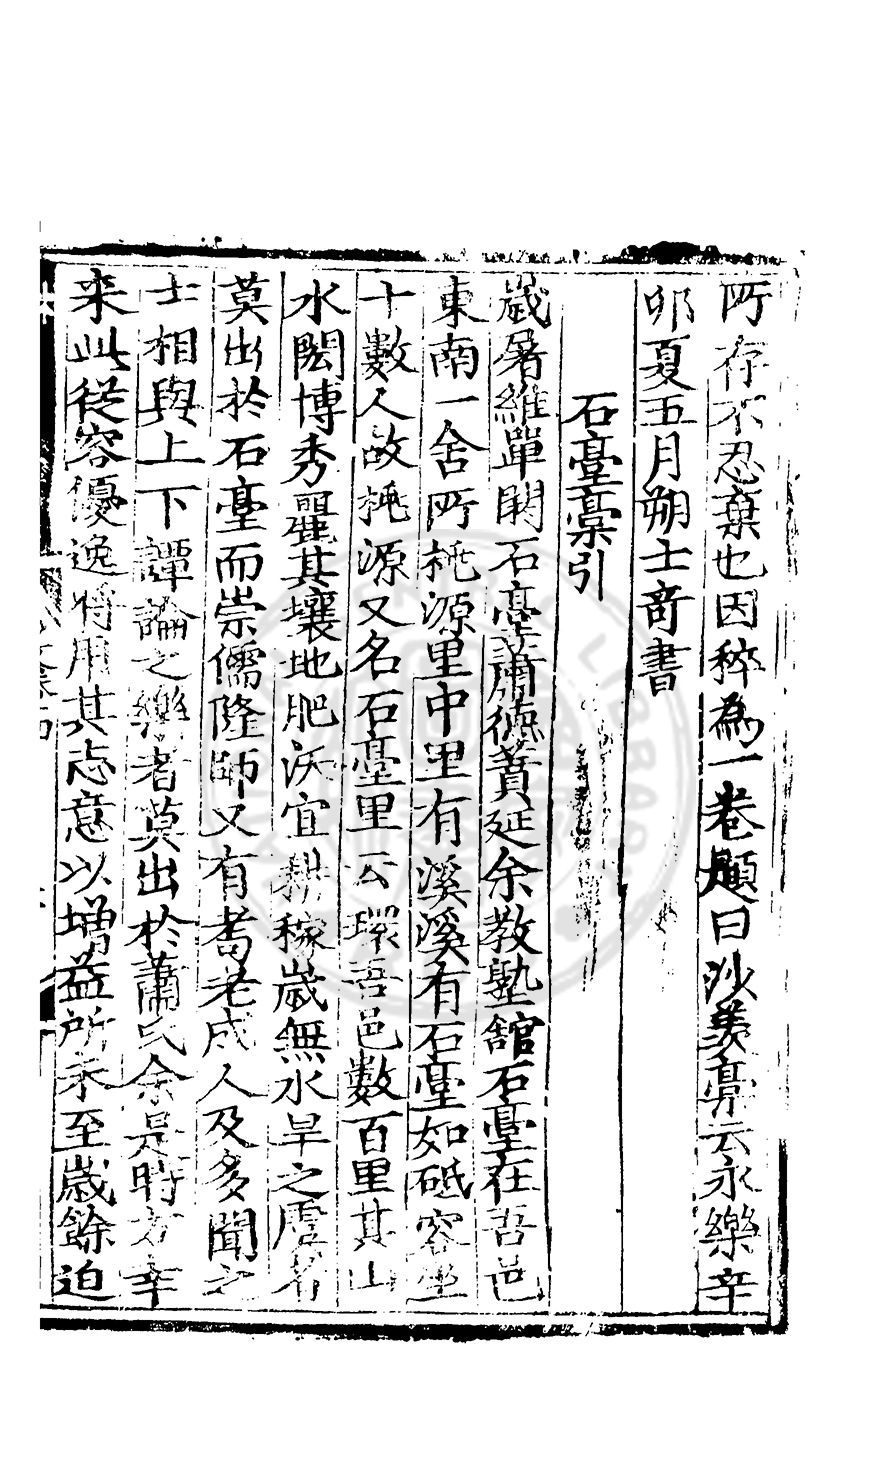 所存不忍棄也因稡為一卷題曰沙羡藁云永樂辛
卯夏五月朔士竒書
石臺藁引
歲屠維單閼石臺蕭徳蕡延余教塾舘石臺在吾邑
東南一舍所桃源里中里有溪溪有石臺如砥容坐
十數人故桃源又名石臺里云環吾邑數百里其山
水閎博秀麗其壤地肥沃宜耕稼歲無水旱之虞者
莫出於石臺而崇儒隆師又有耆老成人及多聞之
士相與上下譚論之樂者莫出於蕭氏余是時方幸
来此從容優逸将用其志意以增益所未至歲餘迫